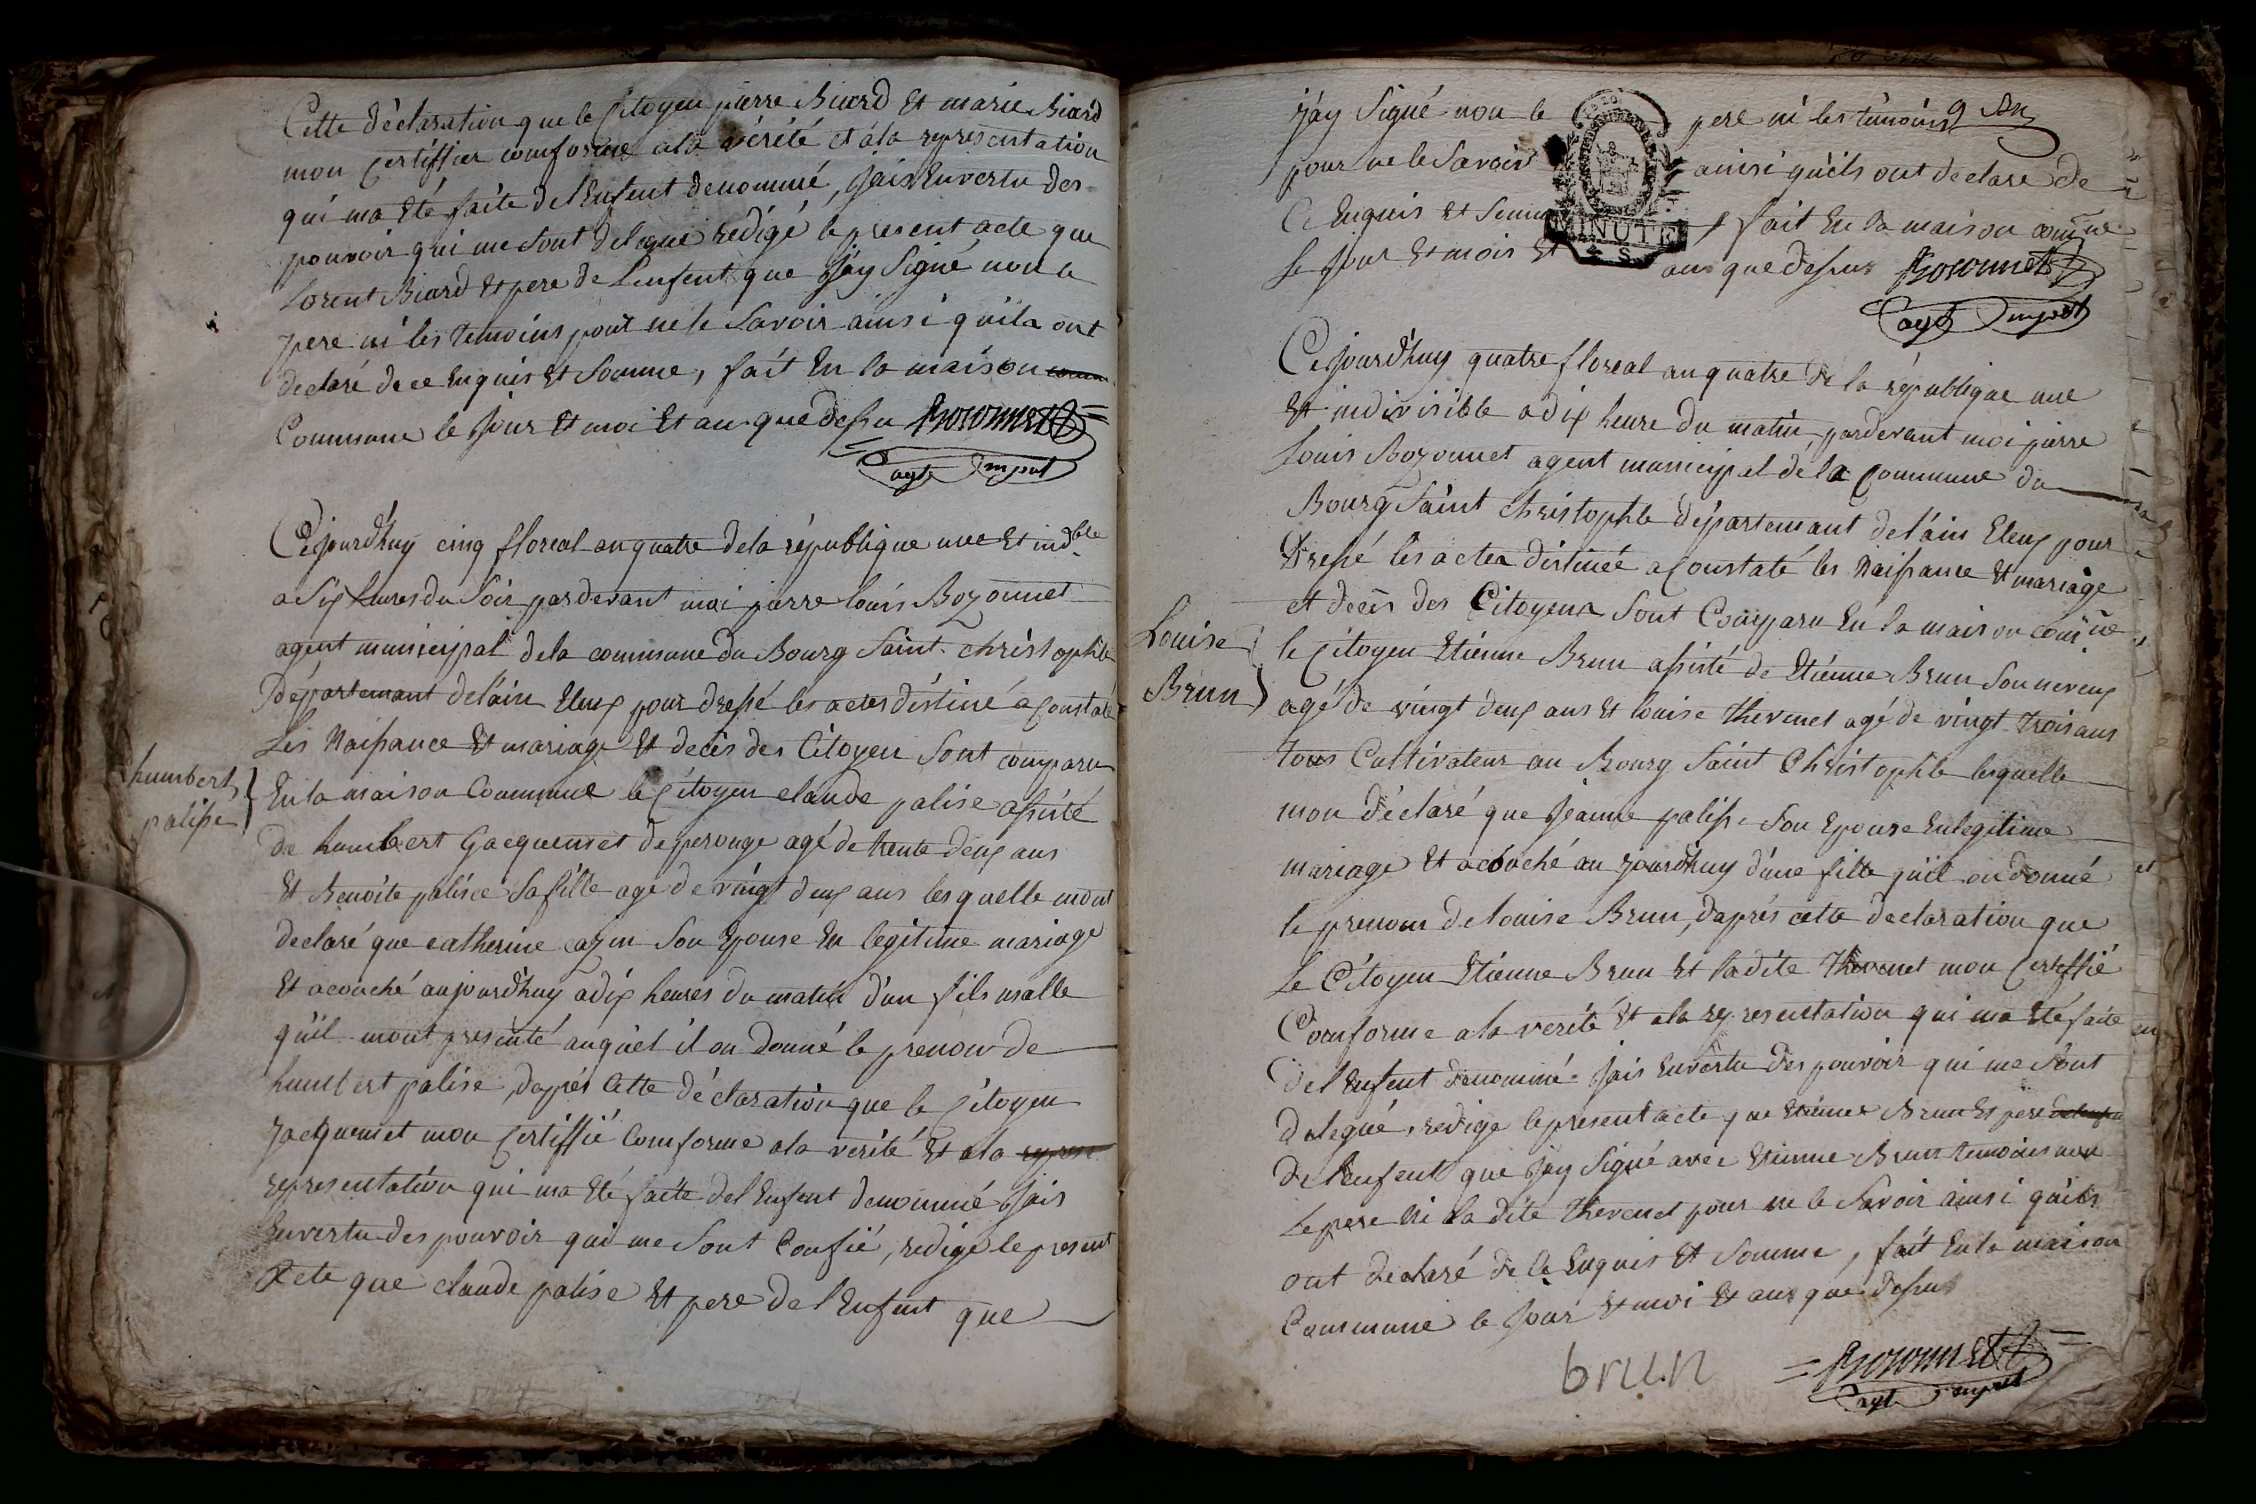 Cette déclaration que le Citoyen pierre Biard et marie Biard
mon Certiffier comforme ala vérité et ala representation
qui ma Eté faite del Enfent denommé, jais Envertu des
pouvoir qui me sont delegué redigé le present acte que
Lorent Biard Et pere de Lenfent que jay Signé non le
pere ni les temoins pour ne le Savoir ainsi quila ont
declaré de ce Enquis et Somme, fait En la maison
Commune le jour Et moi Et an que desu Bozonnet
agt mpal
Cejourdhuy cinq floreal an quatre dela république une Et indble
a Six heures du Soir pardevant moi pierre louis Bozonnet
agent municipal dela commune du Bourg Saint christophle
Département delain Eleuz pour dressé les actes déstiné a Constaté
Les Naissance Et mariage Et deces des Citoyen Sont comparu
humbert
palisse
En la maison Commune le Citoyen claude palise assisté
de humbert Gacquemet de perouge agé de trente deux ans
Et Benoite palisce Sa fille age de vingt deux ans lesquelle mont
declaré que catherine cozon Son Epouse En legitime mariage
Et acouché aujourdhuy a dix heures du matin d'un fils malle
qu'il mont presenté auquel il on Donné le prenom de
humbert palise, dapres Cette déclaration que le Citoyen
jacquemet mon Certiffié Comforme ala verité Et ala repres
representation qui ma Eté faite del Enfent denommé jais
Envertu des pouvoir qui me Sont Confié, redige le present
Acte que claude palise Et pere De l'Enfent que
9 An
jay Signé non le pere ni les temoins
pour ne le Savoir ainsi qu'ils ont declaré de
Ce Enquis et Somme fait En la maison comune
MINUTE
Le jour Et mois Et an que desus Bozonnet
agt mpal
Cejourdhuy quatre floreal an quatre de la république une
Et indivisible a dix heure du matin, pardevant moi pierre
Louis Bozonnet agent municipal de la Commune du
Bourg Saint Christophle département de l'ain Eleuz pour
Dressé les actes distiné a Constaté les Naissance Et mariage
et deces des Citoyens Sont Comparu En la maison comune
Louise
Brun
le Citoyen Etienne Brun assisté de Etienne Brun Son neveux
agé de vingt deux ans Et louise thevenet agé de vingt trois ans
tous Cultivateur au Bourg Saint Christophle lesquelle
mon déclaré que jeanne palise Son Epouse En legitime
mariage Et acouché au jourdhuy d'une fille qu'il on donné
le prenom de louise Brun, daprés cette declaration que
Le Citoyen Etienne Brun Et ladite thevenet mon Certiffié
Comforme ala verité Et ala representation qui ma Eté faite
Del Enfent denommé jais Envertu des pouvoir qui me Sont
delegué, redige le present acte que Etienne Brun Et pere
De l'enfent que jay Signé avec Etienne Brun temoins non
Le pere ni la dite thevenet pour ne le Savoir ainsi qu'ils
ont declaré de Ce Enquis Et Somme, fait En la maison
Commune le jour Et moi Et an que desus
brun Bozonnet
agt mpal